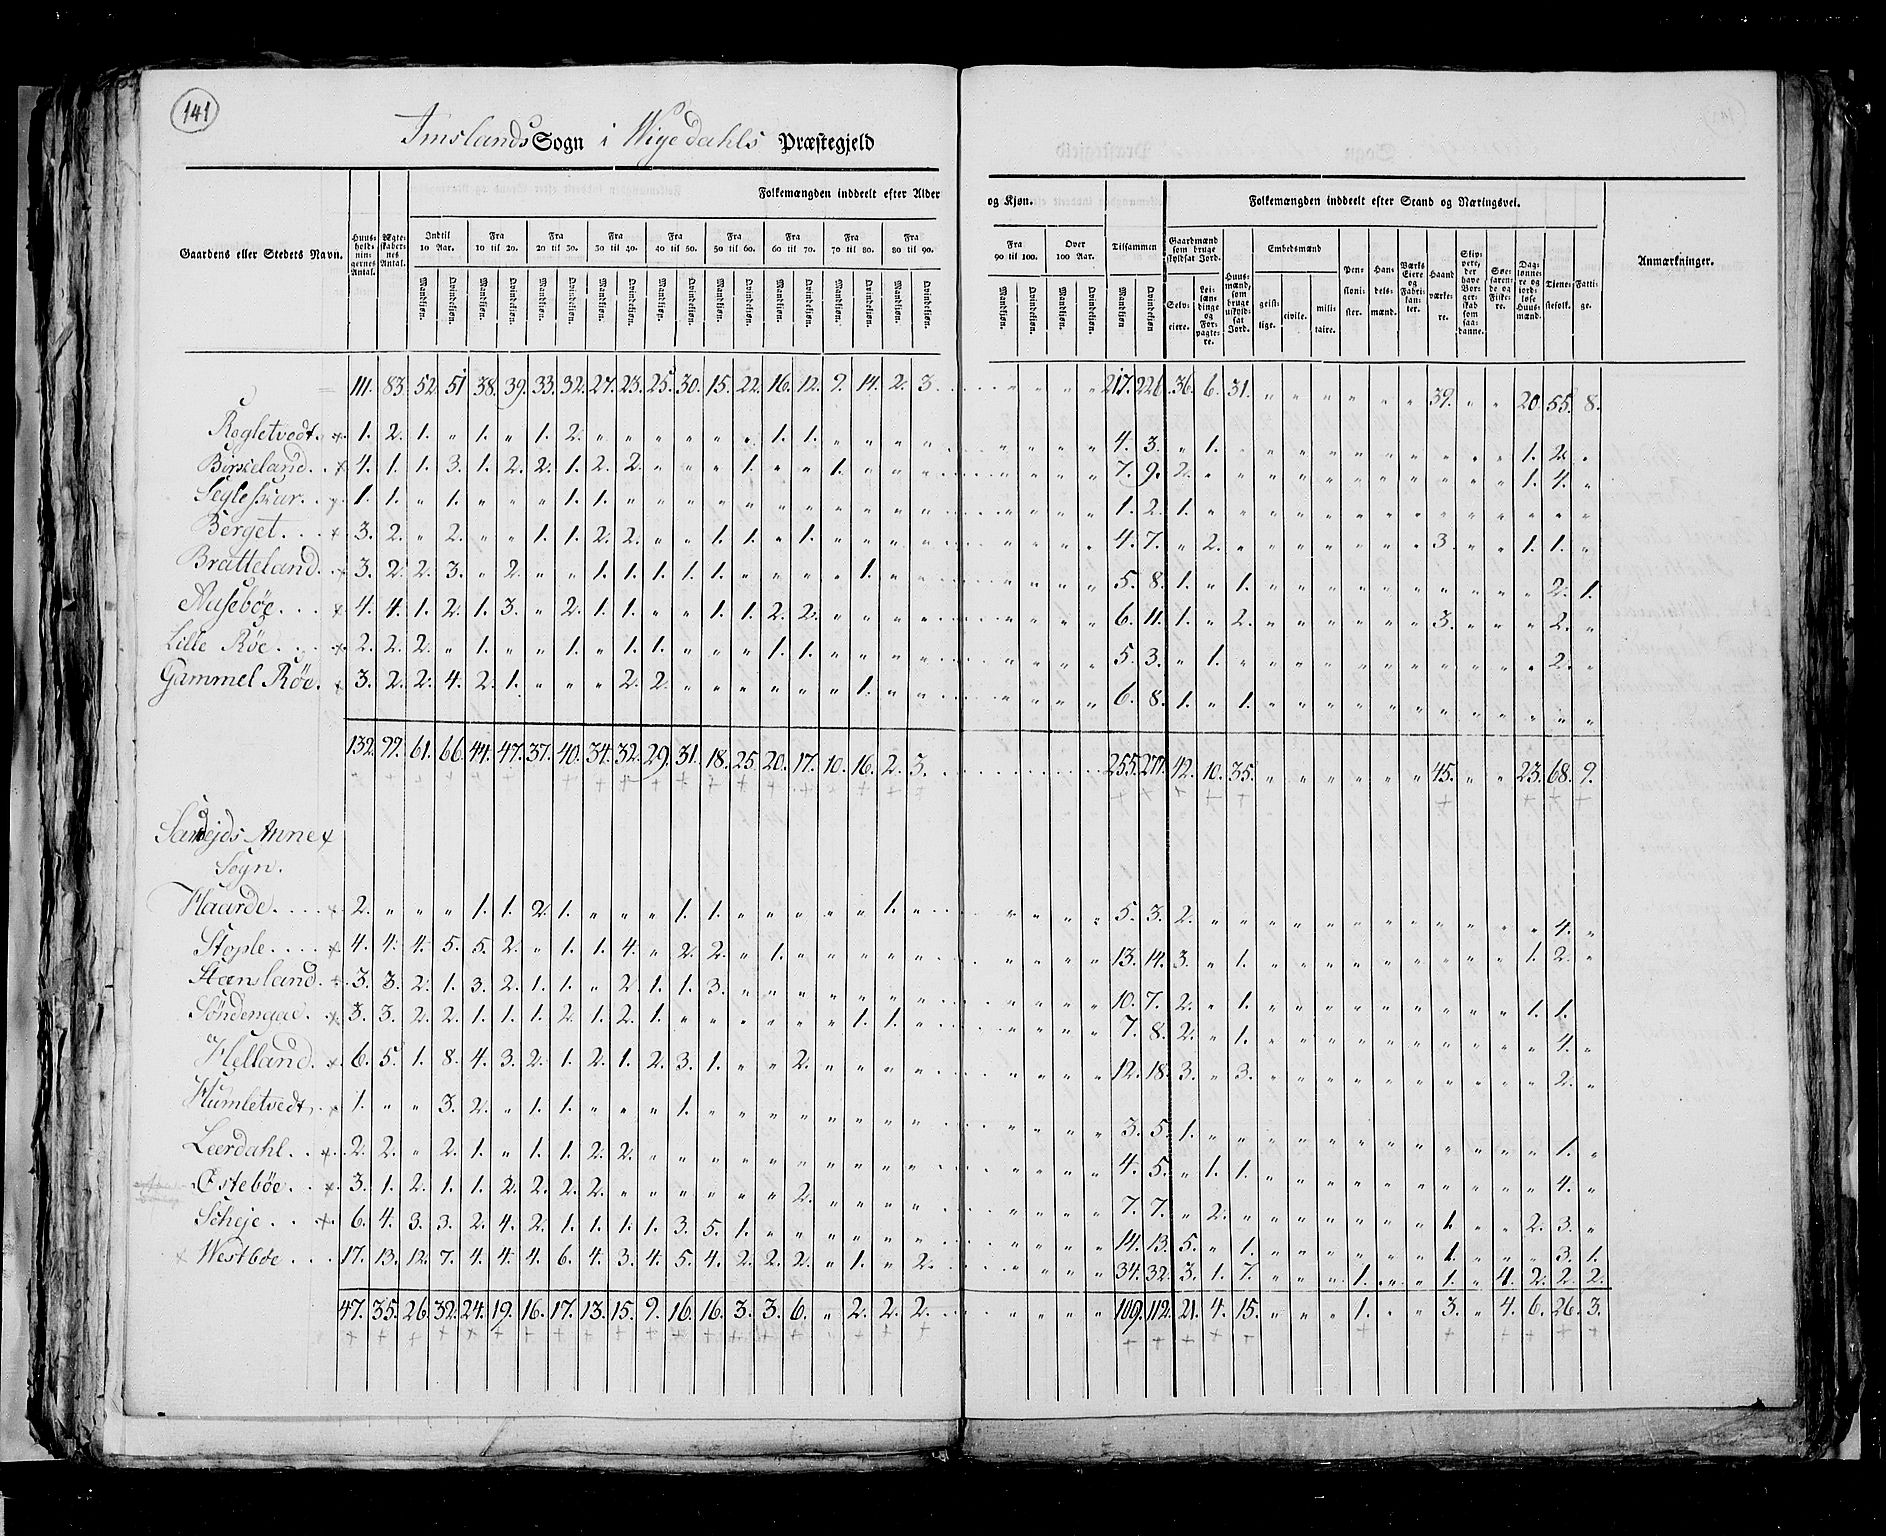 141
Imslands Sogn i Wigedahls Præstegjeld
Gaardens eller Stedets Navn. Huus-hold-nin-gernes Antal. Ægte-skaber-nes Antal. Folkemængden inddeelt efter Alder og Kjøn. Tilsammen Folkemængden inddeelt efter Stand og Næringsvei. Anmærkninger.
Indtil 10 Aar. Fra 10 til 20. Fra 20 til 30. Fra 30 til 40. Fra 40 til 50. Fra 50 til 60. Fra 60 til 70. Fra 70 til 80. Fra 80 til 90. Fra 90 til 100. Over 100 Aar.
Gaardmænd som bruge skyldsat Jord. Huus-mænd, som bruge uskyld-sat Jord. Embedsmænd Pen-sioni-ster. Han-dels-mænd. Værks Eiere og Fabri-kan-ter. Haand værke-re. Skip-pere, der have Bor-ger-skab som saa-danne. Søe-faren-de og Fiske-re. Dag-lønne-re og jord-løse Huus-mænd. Tiene-stefolk. Fatti-ge.
Mandkiøn. Qvindekiøn. Selv-eiere. Lei-læn-dinge og For-pagte-re. geist-lige. civile. mili-taire.
111. 83. 52. 51 38. 39. 33. 32. 27. 23. 25. 30. 15. 22. 16. 12. 9. 14. 2. 3. 217. 226 36. 6. 31. 39. 20. 55. 8.
Rogletvedt. 1. 2. 1. 1. 1. 2. 1. 1. 4. 3. 1. 1. 2.
Birkeland. 4. 1. 1. 3. 1. 2. 2. 1. 2. 2. 1. 1. 7. 9. 2. 1. 4.
1. 1. 1. 1. 1. 1. 2. 1.
Berget. 3. 2. 2. 1. 1. 2. 2. 1. 1. 1. 4. 7. 2. 3. 1. 1.
Bratteland. 3. 2. 2. 3. 2. 1. 1. 1. 1. 1. 1. 5. 8. 1. 1. 2. 1.
Ausebøe. 4. 4. 1. 2. 1. 3. 2. 1. 1. 1. 1. 2. 2. 6. 11. 1. 2. 3. 2.
Lille Røe. 2. 2. 2. 1. 1. 1. 1. 1. 1. 5. 3. 1. 2.
Gammel Røe. 3. 2. 2. 4. 2. 1. 2. 2. 1. 6. 8. 1. 1.
132. 99. 61. 66 44. 47. 37. 40. 34. 32. 29. 31. 18. 25. 20. 17. 10. 16. 2. 3. 255. 277. 42. 10. 35. 45. 23. 68. 9.
Sandejds Annex
Sogn.
Haarde. 2. 1. 1. 2. 1. 1. 1. 1. 5. 3. 2. 4.
Stople. 4. 4. 4. 5. 5. 2. 1. 1. 4. 2. 2. 1. 13. 14. 3. 1. 1. 2.
Hansland. 3. 3. 2. 1. 3. 2. 1. 1. 2. 1. 1. 3. 10. 7. 2. 1. 1. 1.
Søndenaae. 3. 3. 2. 2. 1. 1. 1. 2. 1. 2. 1. 1. 1. 7. 8. 2. 1. 4.
Helland. 6. 5. 1. 8. 4. 3. 2. 1. 2. 1. 2. 3. 1. 2. 12. 18. 3. 3. 2.
Humletvedt. 1. 3. 2. 1. 1. 1. 3. 5. 1. 1.
Leerdahl. 2. 2. 2. 1. 1. 1. 2. 2. 4. 5. 1. 1. 4.
Østebøe. 3. 1. 2. 1. 1. 2. 2. 2. 2. 2. 7. 7. 2. 1. 2. 3.
Scheje. 6. 4. 3. 3. 2. 4. 2. 1. 1. 1. 1. 3. 5. 1. 14. 13. 5. 1. 1. 3. 1.
Westbøe. 17. 13. 12. 7. 4. 4. 4. 6. 4. 3. 4. 5. 4. 2. 2. 2. 1. 2. 34. 32. 3. 1. 7. 1. 1. 4. 2. 2. 2.
47. 35. 26. 32. 24. 19. 16. 17. 13. 15. 9. 16. 16. 3. 3. 6. 2. 2. 2. 109. 112. 21. 4. 15. 1. 3. 4. 6. 26. 3.